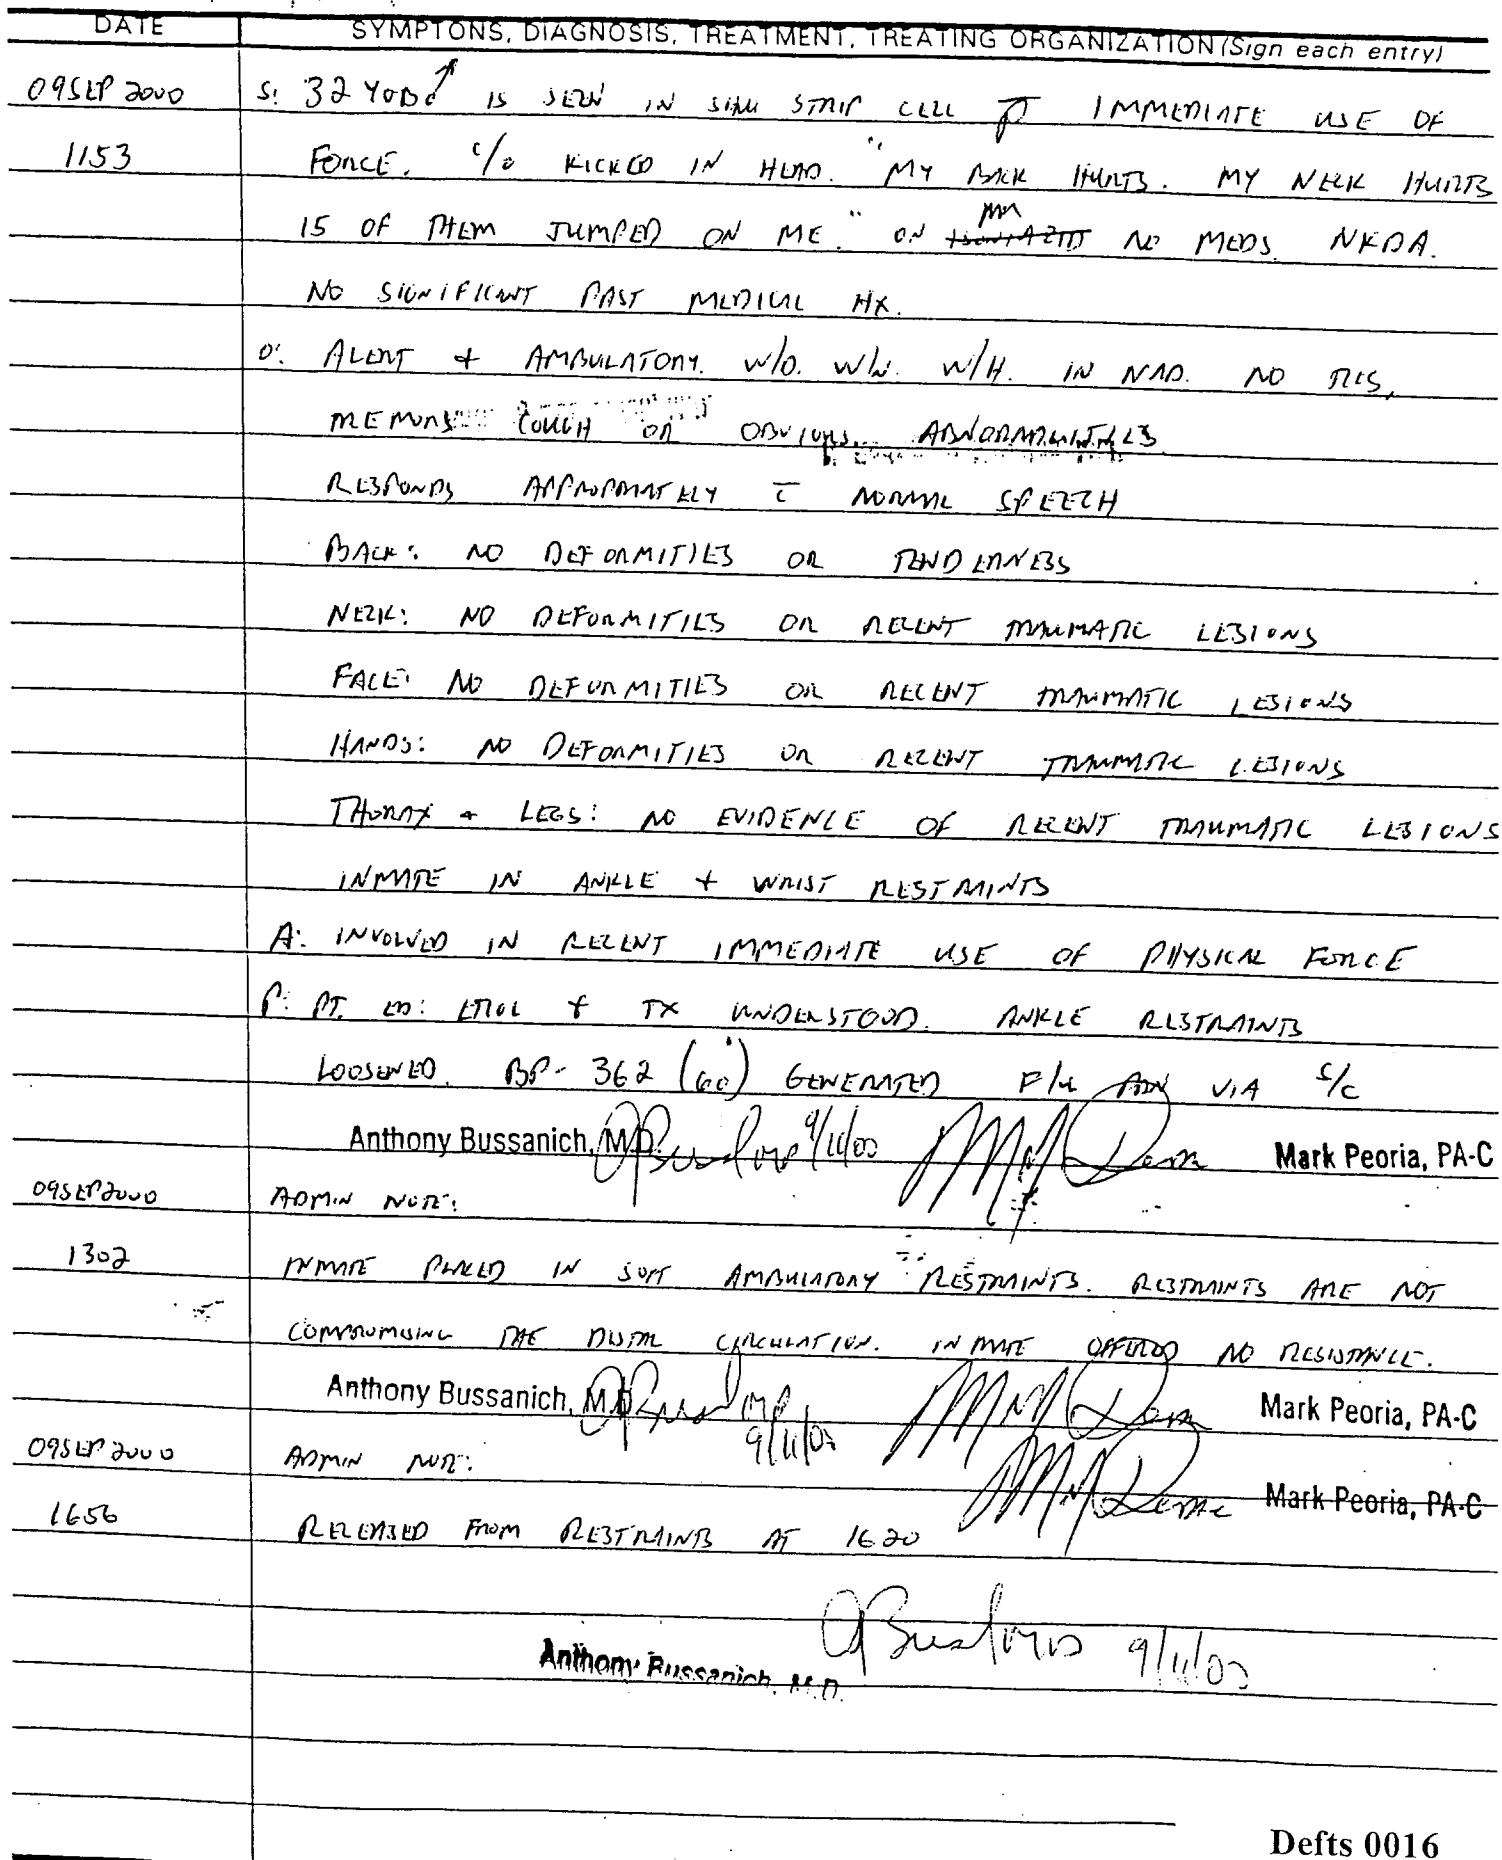 DATE SYMPTONS, DIAGNOSIS, TREATMENT, TREATING ORGANIZATION (Sign each entry)
09SEP2000 S: 32 YOB♂ IS SEEN IN STRIP CELL IMMEDIATE USE OF
1153 FORCE. C/O KICKED IN HEAD. "MY BACK HURTS. MY NECK HURTS
15 OF THEM JUMPED ON ME." ON NO MEDS. NKDA.
NO SIGNIFICANT PAST MEDICAL HX.
O: ALERT + AMBULATORY. W/D. W/N. W/H. IN NAD. NO TICS,
TREMORS COUGH OR OBVIOUS ABNORMALITIES
RESPONDS APPROPRIATELY c̄ NORMAL SPEECH
BACK: NO DEFORMITIES OR TENDERNESS
NECK: NO DEFORMITIES OR RECENT TRAUMATIC LESIONS
FACE: NO DEFORMITIES OR RECENT TRAUMATIC LESIONS
HANDS: NO DEFORMITIES OR RECENT TRAUMATIC LESIONS
THORAX + LEGS: NO EVIDENCE OF RECENT TRAUMATIC LESIONS
INMATE IN ANKLE + WRIST RESTRAINTS
A: INVOLVED IN RECENT IMMEDIATE USE OF PHYSICAL FORCE
P: PT. ED: ETIOL + TX UNDERSTOOD. ANKLE RESTRAINTS
LOOSENED. BP-362 (60) GENERATED F/U PRN VIA S/C
Anthony Bussanich, M.D. 9/11/00 Mark Peoria, PA-C
09SEP2000 ADMIN NOTE:
1302 INMATE PLACED IN SOFT AMBULATORY RESTRAINTS. RESTRAINTS ARE NOT
COMPROMISING THE DISTAL CIRCULATION. INMATE OFFERED NO RESISTANCE.
Anthony Bussanich, M.D. 9/11/00 Mark Peoria, PA-C
09SEP2000 ADMIN NOTE:
Mark Peoria, PA-C
1656 RELEASED FROM RESTRAINTS AT 1620
Anthony Bussanich, M.D. 9/11/00
Defts 0016